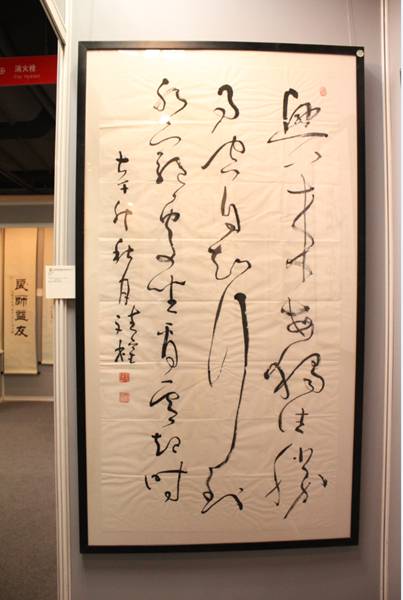 消火栓
Fire Hydrant
興來每獨往勝
事空自知行到
水窮處坐看雲起時
秋月
良師益友